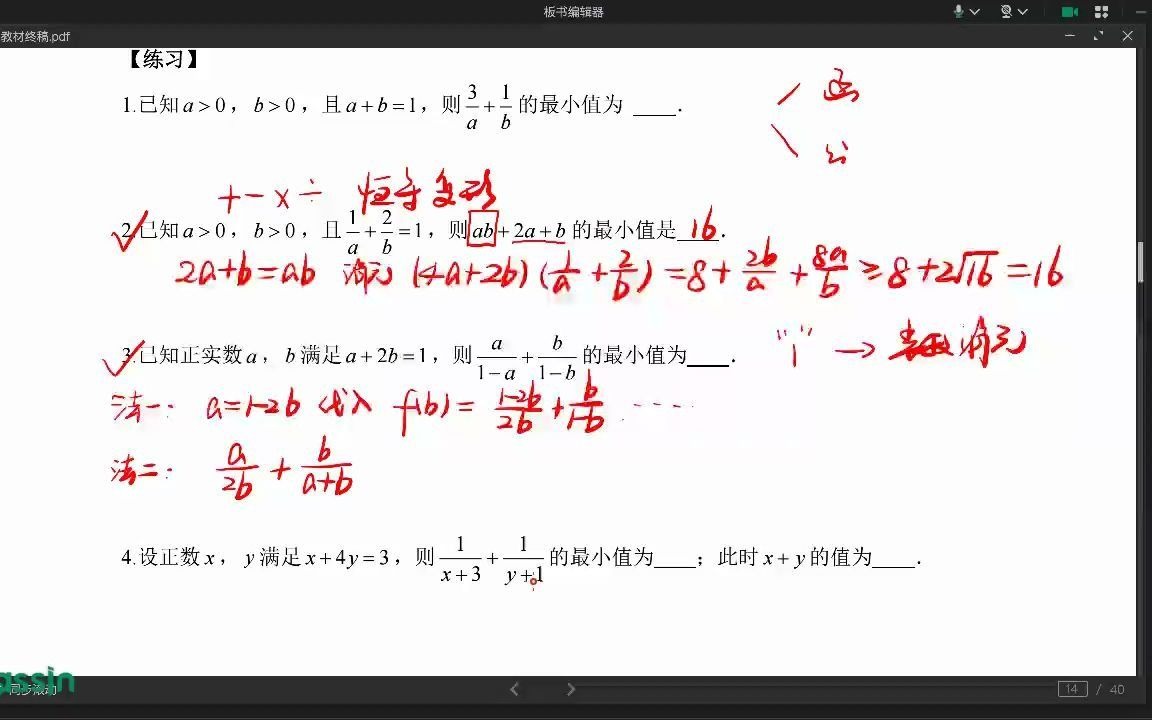 板书编辑器
教材终稿.pdf
【练习】
1.已知 a>0，b>0，且 a+b=1，则 3/a + 1/b 的最小值为 ____.
函
+ - × ÷ 恒等变形
2.已知 a>0，b>0，且 1/a + 2/b =1，则 ab+2a+b 的最小值是 16.
2a+b=ab 消元 (4a+2b)(1/a + 2/b) = 8 + 2b/a + 8a/b ≥ 8+2√16 = 16
3.已知正实数 a，b 满足 a+2b=1，则 a/(1-a) + b/(1-b) 的最小值为____.
"1" → 消元
法一: a=1-2b 代入 f(b) = (1-2b)/2b + b/(1-b) ....
法二: a/2b + b/(a+b)
4.设正数 x，y 满足 x+4y=3，则 1/(x+3) + 1/(y+1) 的最小值为____；此时 x+y 的值为____.
assin
同步滚动
14 / 40